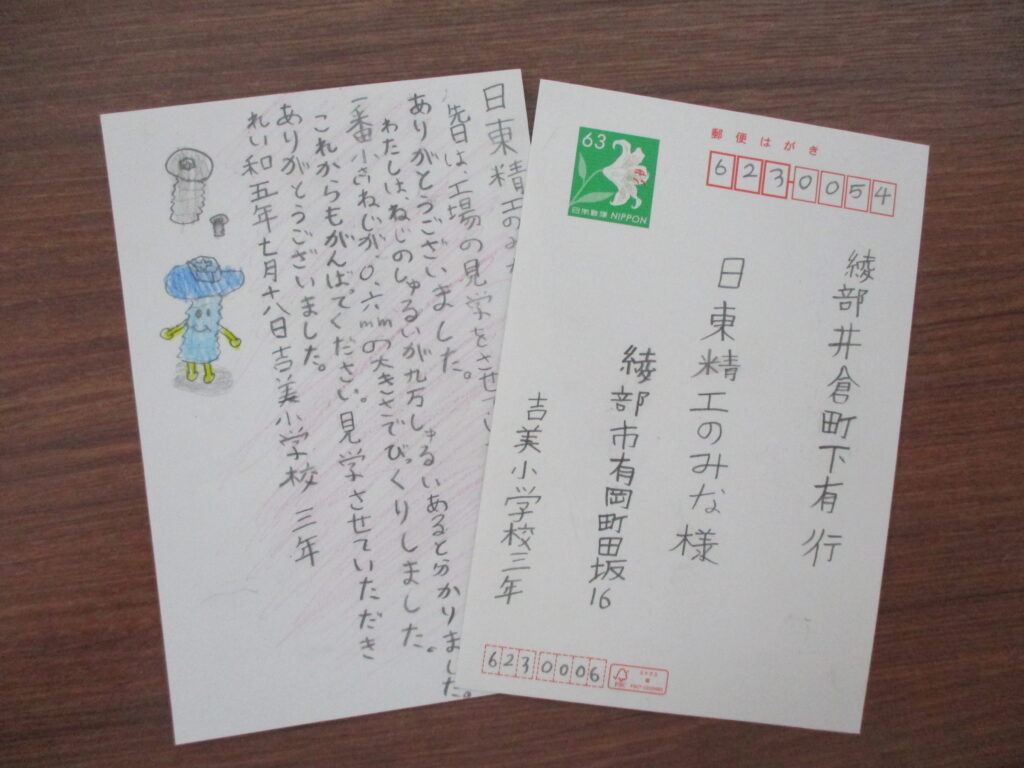 日東精工のみ
先日は、工場の見学をさせ
ありがとうございました。
わたしは、ねじのしゅるいが九万しゅるいあると分かりました。
一番小さねじが、0.六mmの大きさでびっくりしました。
これからもがんばってください。見学させていただき
ありがとうございました。
れい和五年七月十八日吉美小学校 三年
郵便はがき
63
日本郵便 NIPPON
623-0054
綾部井倉町下有 行
日東精工のみな様
綾部市有岡町田坂16
吉美小学校三年
6230006
FSC